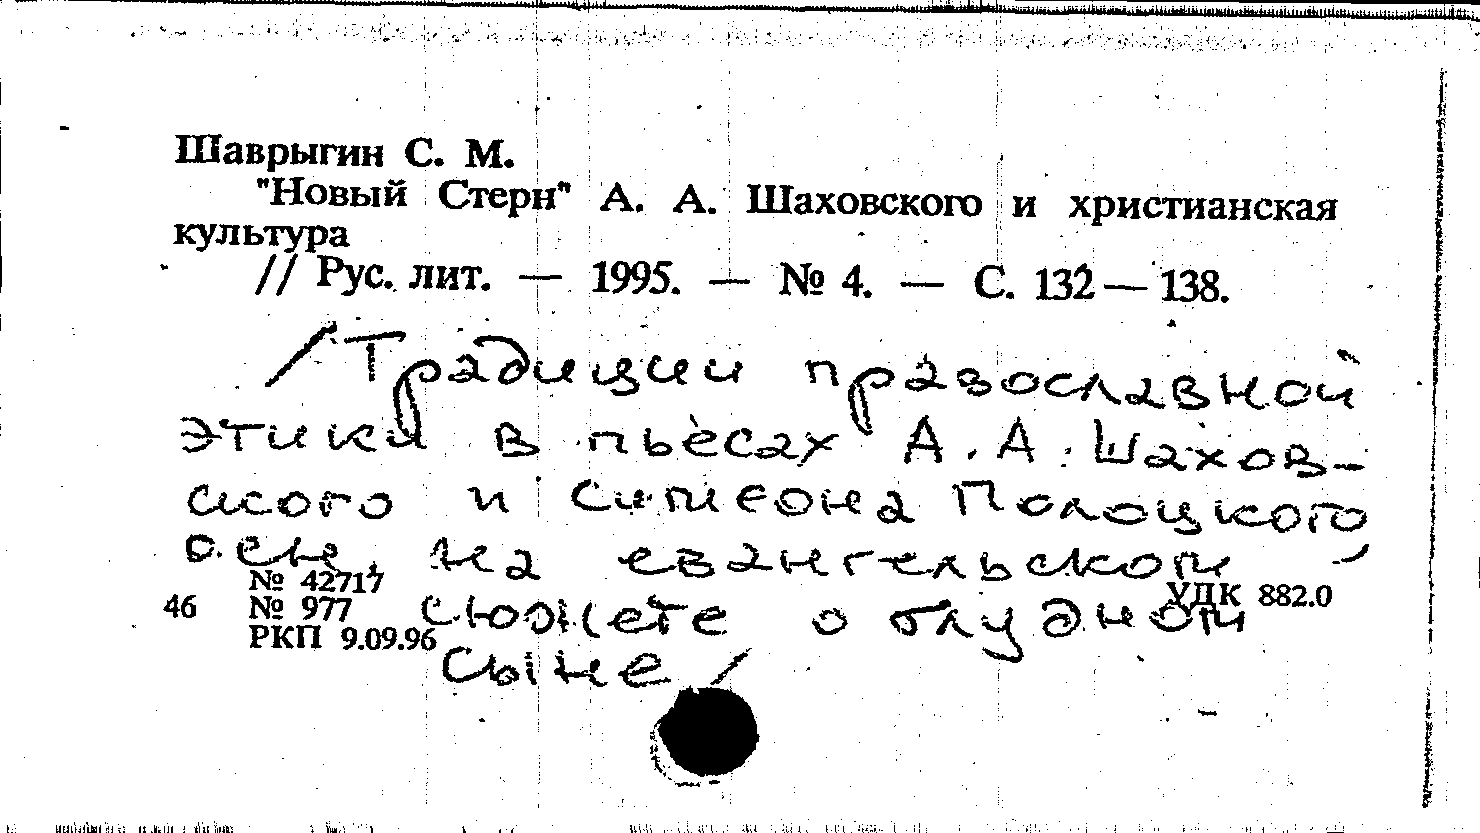 Шаврыгин С. М.
"Новый Стерн" А. А. Шаховского и христианская
культура
// Рус. лит. — 1995. — № 4. — С. 132—138.
/Традиции православной
этики в пьесах А. А. Шахов-
ского и Симеона Полоцкого,
осн. на евангельском
№ 42717
46 № 977 сюжете о блудном УДК 882.0
РКП 9.09.96
сыне/